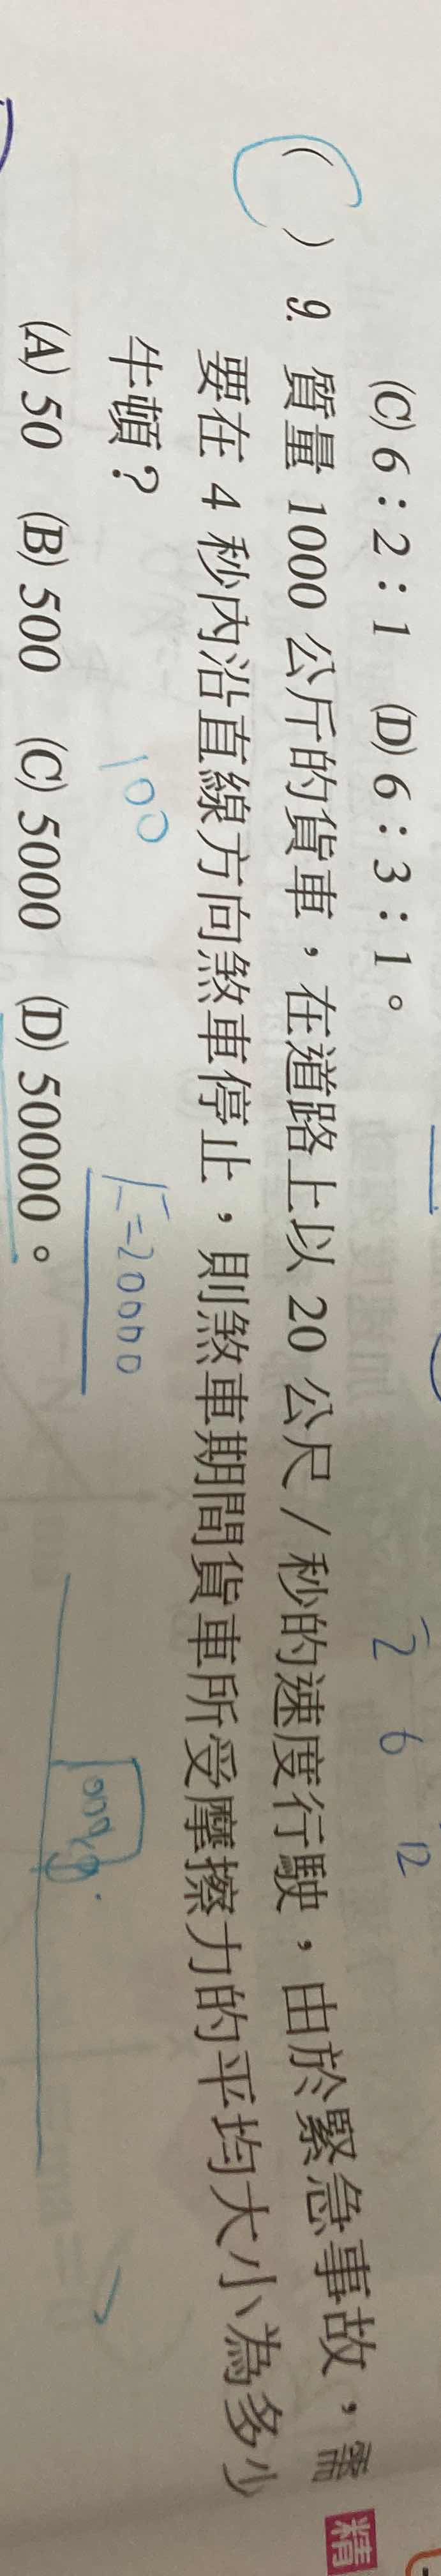 (C) 6：2：1 (D) 6：3：1。
2 6 12
( ) 9. 質量 1000 公斤的貨車，在道路上以 20 公尺／秒的速度行駛，由於緊急事故，需
精
要在 4 秒內沿直線方向煞車停止，則煞車期間貨車所受摩擦力的平均大小為多少
牛頓？
100
F=20000
(A) 50 (B) 500 (C) 5000 (D) 50000。